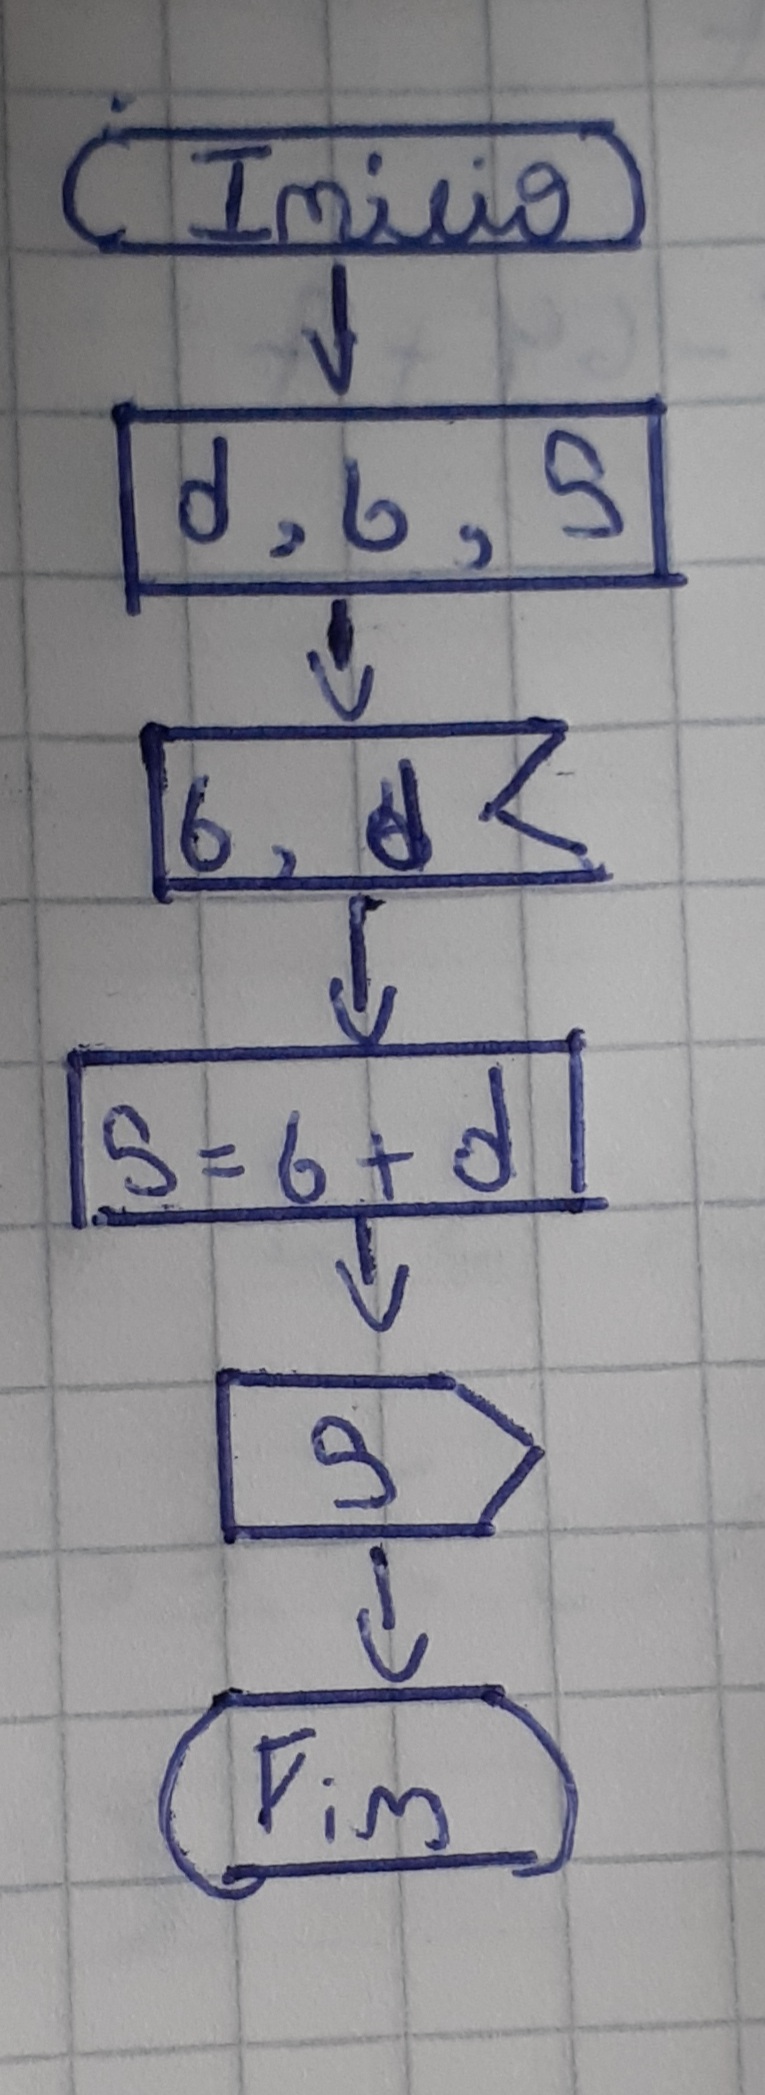 Inicio
d, b, S
b, d
S = b + d
S
Fim